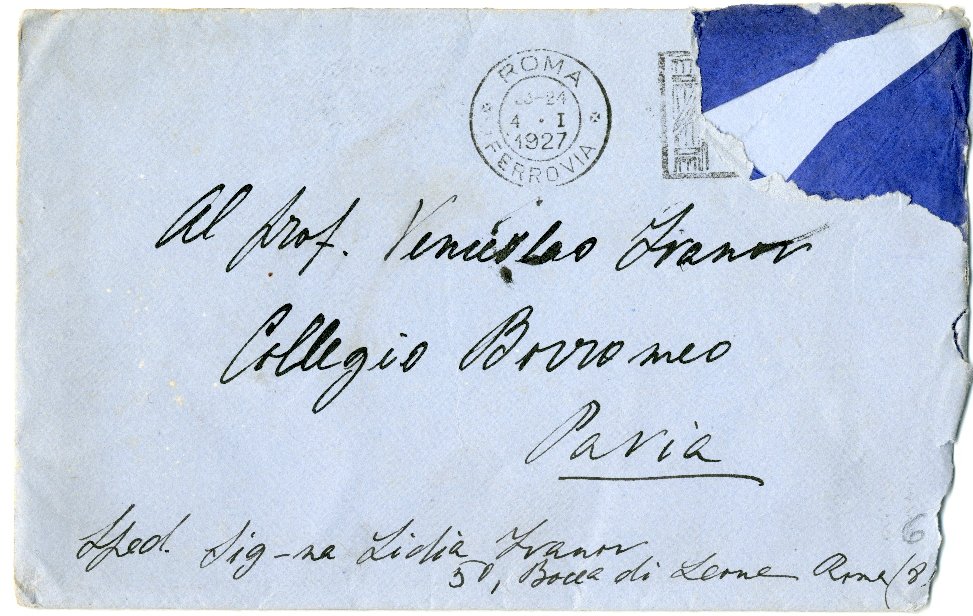 ROMA
23-24
4 · I
1927
FERROVIA
Al prof. Venceslao Ivanov
Collegio Borromeo
Pavia
Sped. Sig-na Lidia Ivanov
50, Bocca di Leone Roma (8
6